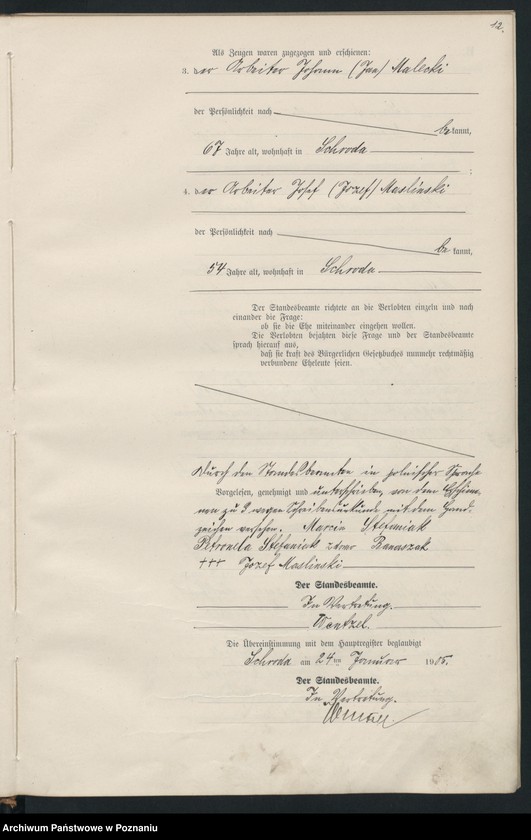 12.
Als Zeugen waren zugezogen und erschienen:
3. der Arbeiter Johann (Jan) Malecki
der Persönlichkeit nach
be kannt,
67 Jahre alt, wohnhaft in Schroda
4. der Arbeiter Josef (Jozef) Maslinski
der Persönlichkeit nach
be kannt,
54 Jahre alt, wohnhaft in Schroda
Der Standesbeamte richtete an die Verlobten einzeln und nach
einander die Frage:
ob sie die Ehe miteinander eingehen wollen.
Die Verlobten bejahten diese Frage und der Standesbeamte
sprach hierauf aus,
daß sie kraft des Bürgerlichen Gesetzbuches nunmehr rechtmäßig
verbundene Eheleute seien.
Durch den Standesbeamten in polnischer Sprache
Vorgelesen, genehmigt und unterschrieben, von dem Erschiene-
nen zu 3 wegen Schreibensunkunde mit dem Hand-
zeichen versehen. Marcin Stefaniak
Petronella Stefaniak Banaszak
+++ Jozef Maslinski
Der Standesbeamte.
In Vertretung.
Wentzel.
Die Übereinstimmung mit dem Hauptregister beglaubigt
Schroda am 24 ten Januar 1905.
Der Standesbeamte.
In Vertretung.
Wentzel
Archiwum Państwowe w Poznaniu